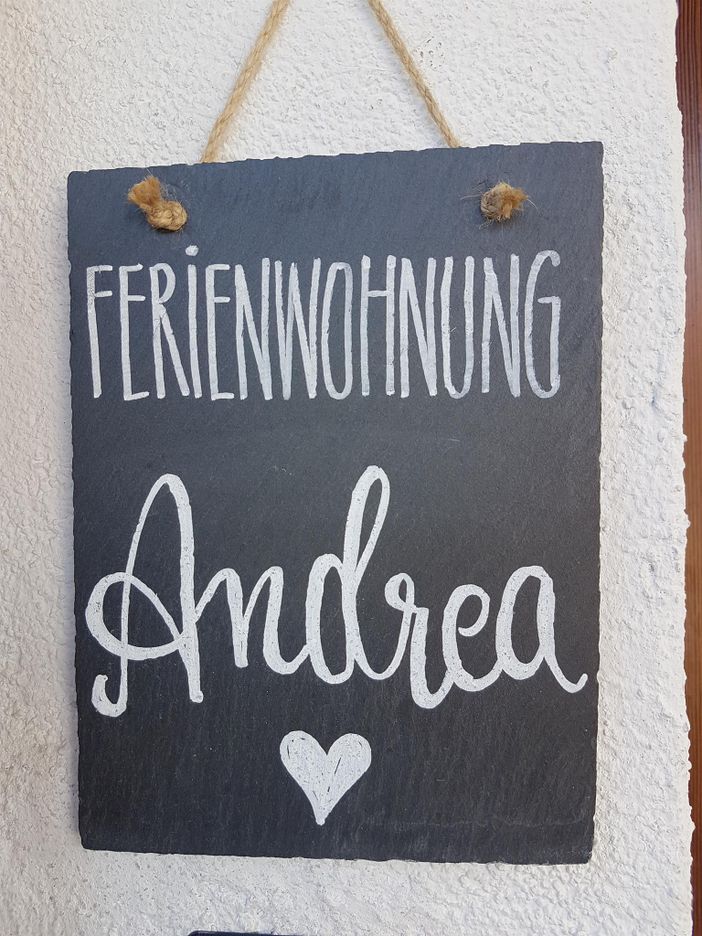 FERIENWOHNUNG
Andrea